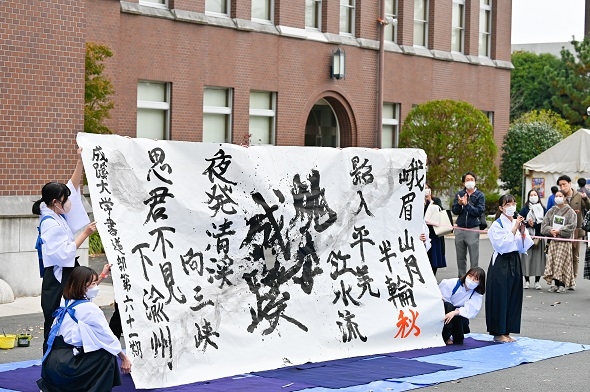 峨眉山月
半輪秋
影入平羌
江水流
桃李
成蹊
夜発清渓
向三峡
思君不見
下渝州
成蹊大学書道部第六十一期